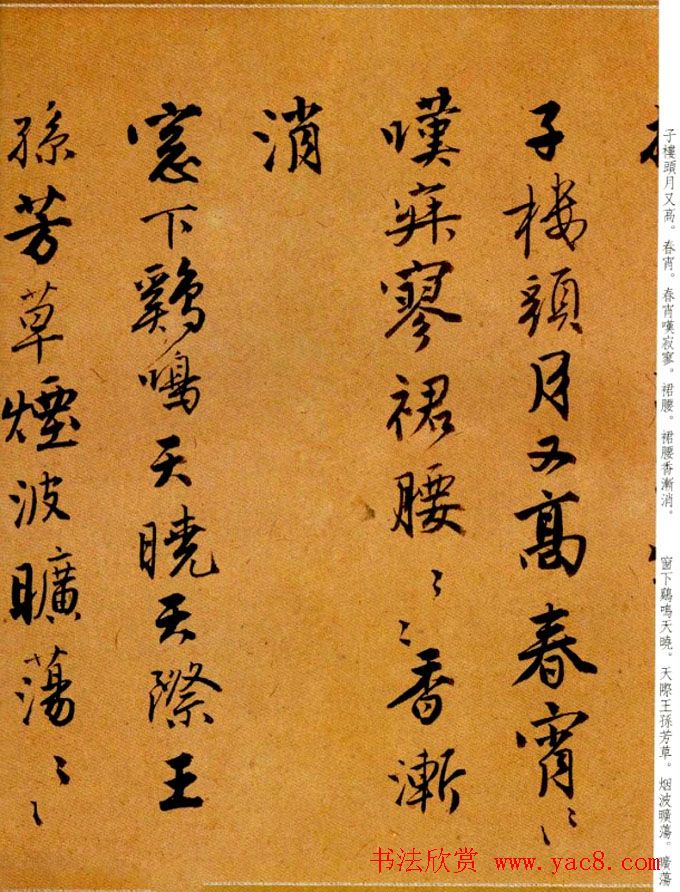 子樓頭月又高。春宵。春宵嘆寂寥。裙腰。裙腰香漸消。　窗下鷄鳴天曉。天際王孫芳草。烟波曠蕩。曠蕩
子樓頭月又高春宵〻〻
嘆寂寥裙腰〻〻香漸
消
窓下鷄鳴天曉天際王
孫芳草煙波曠蕩〻〻
书法欣赏 www.yac8.com